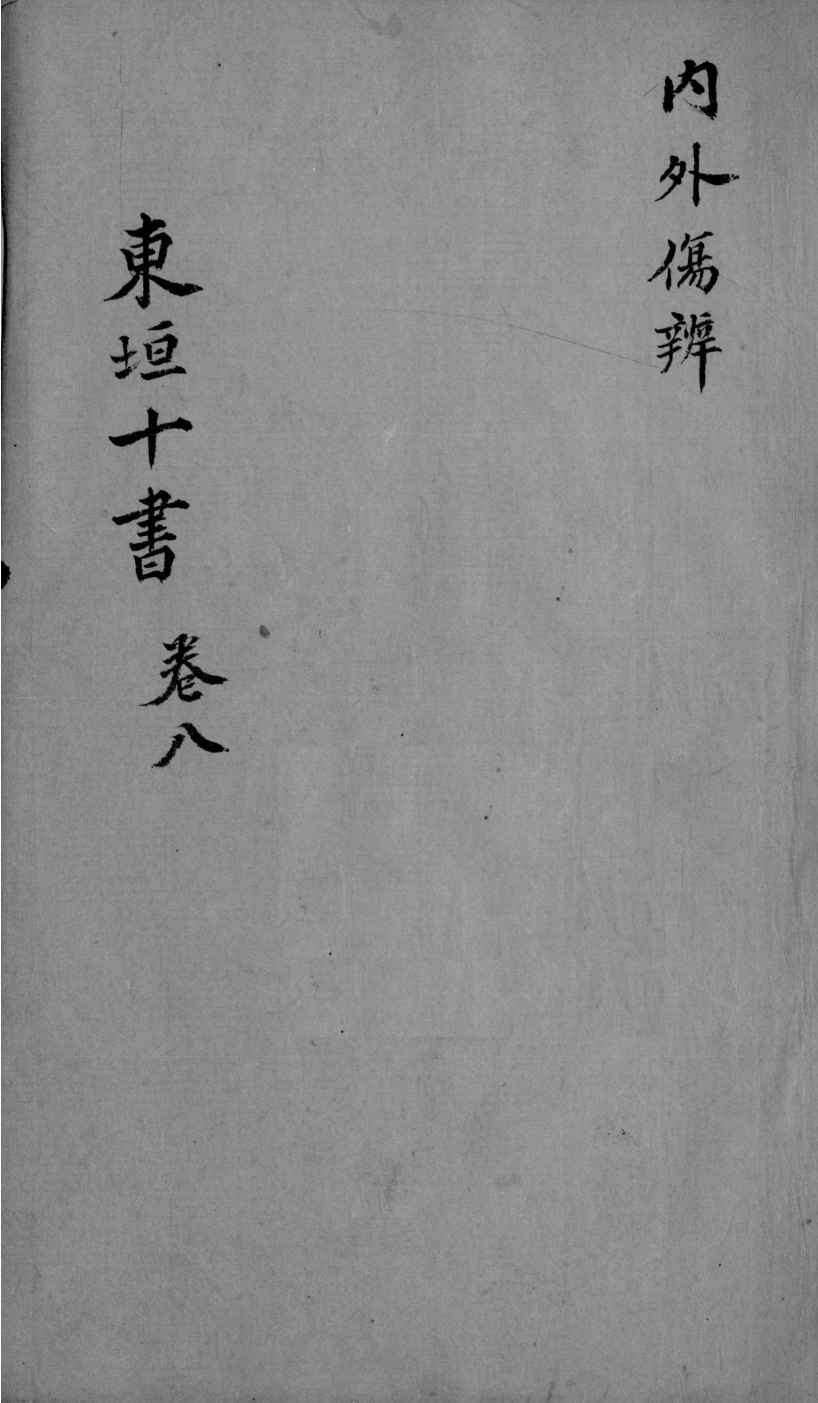 内外傷辨
東垣十書 卷八